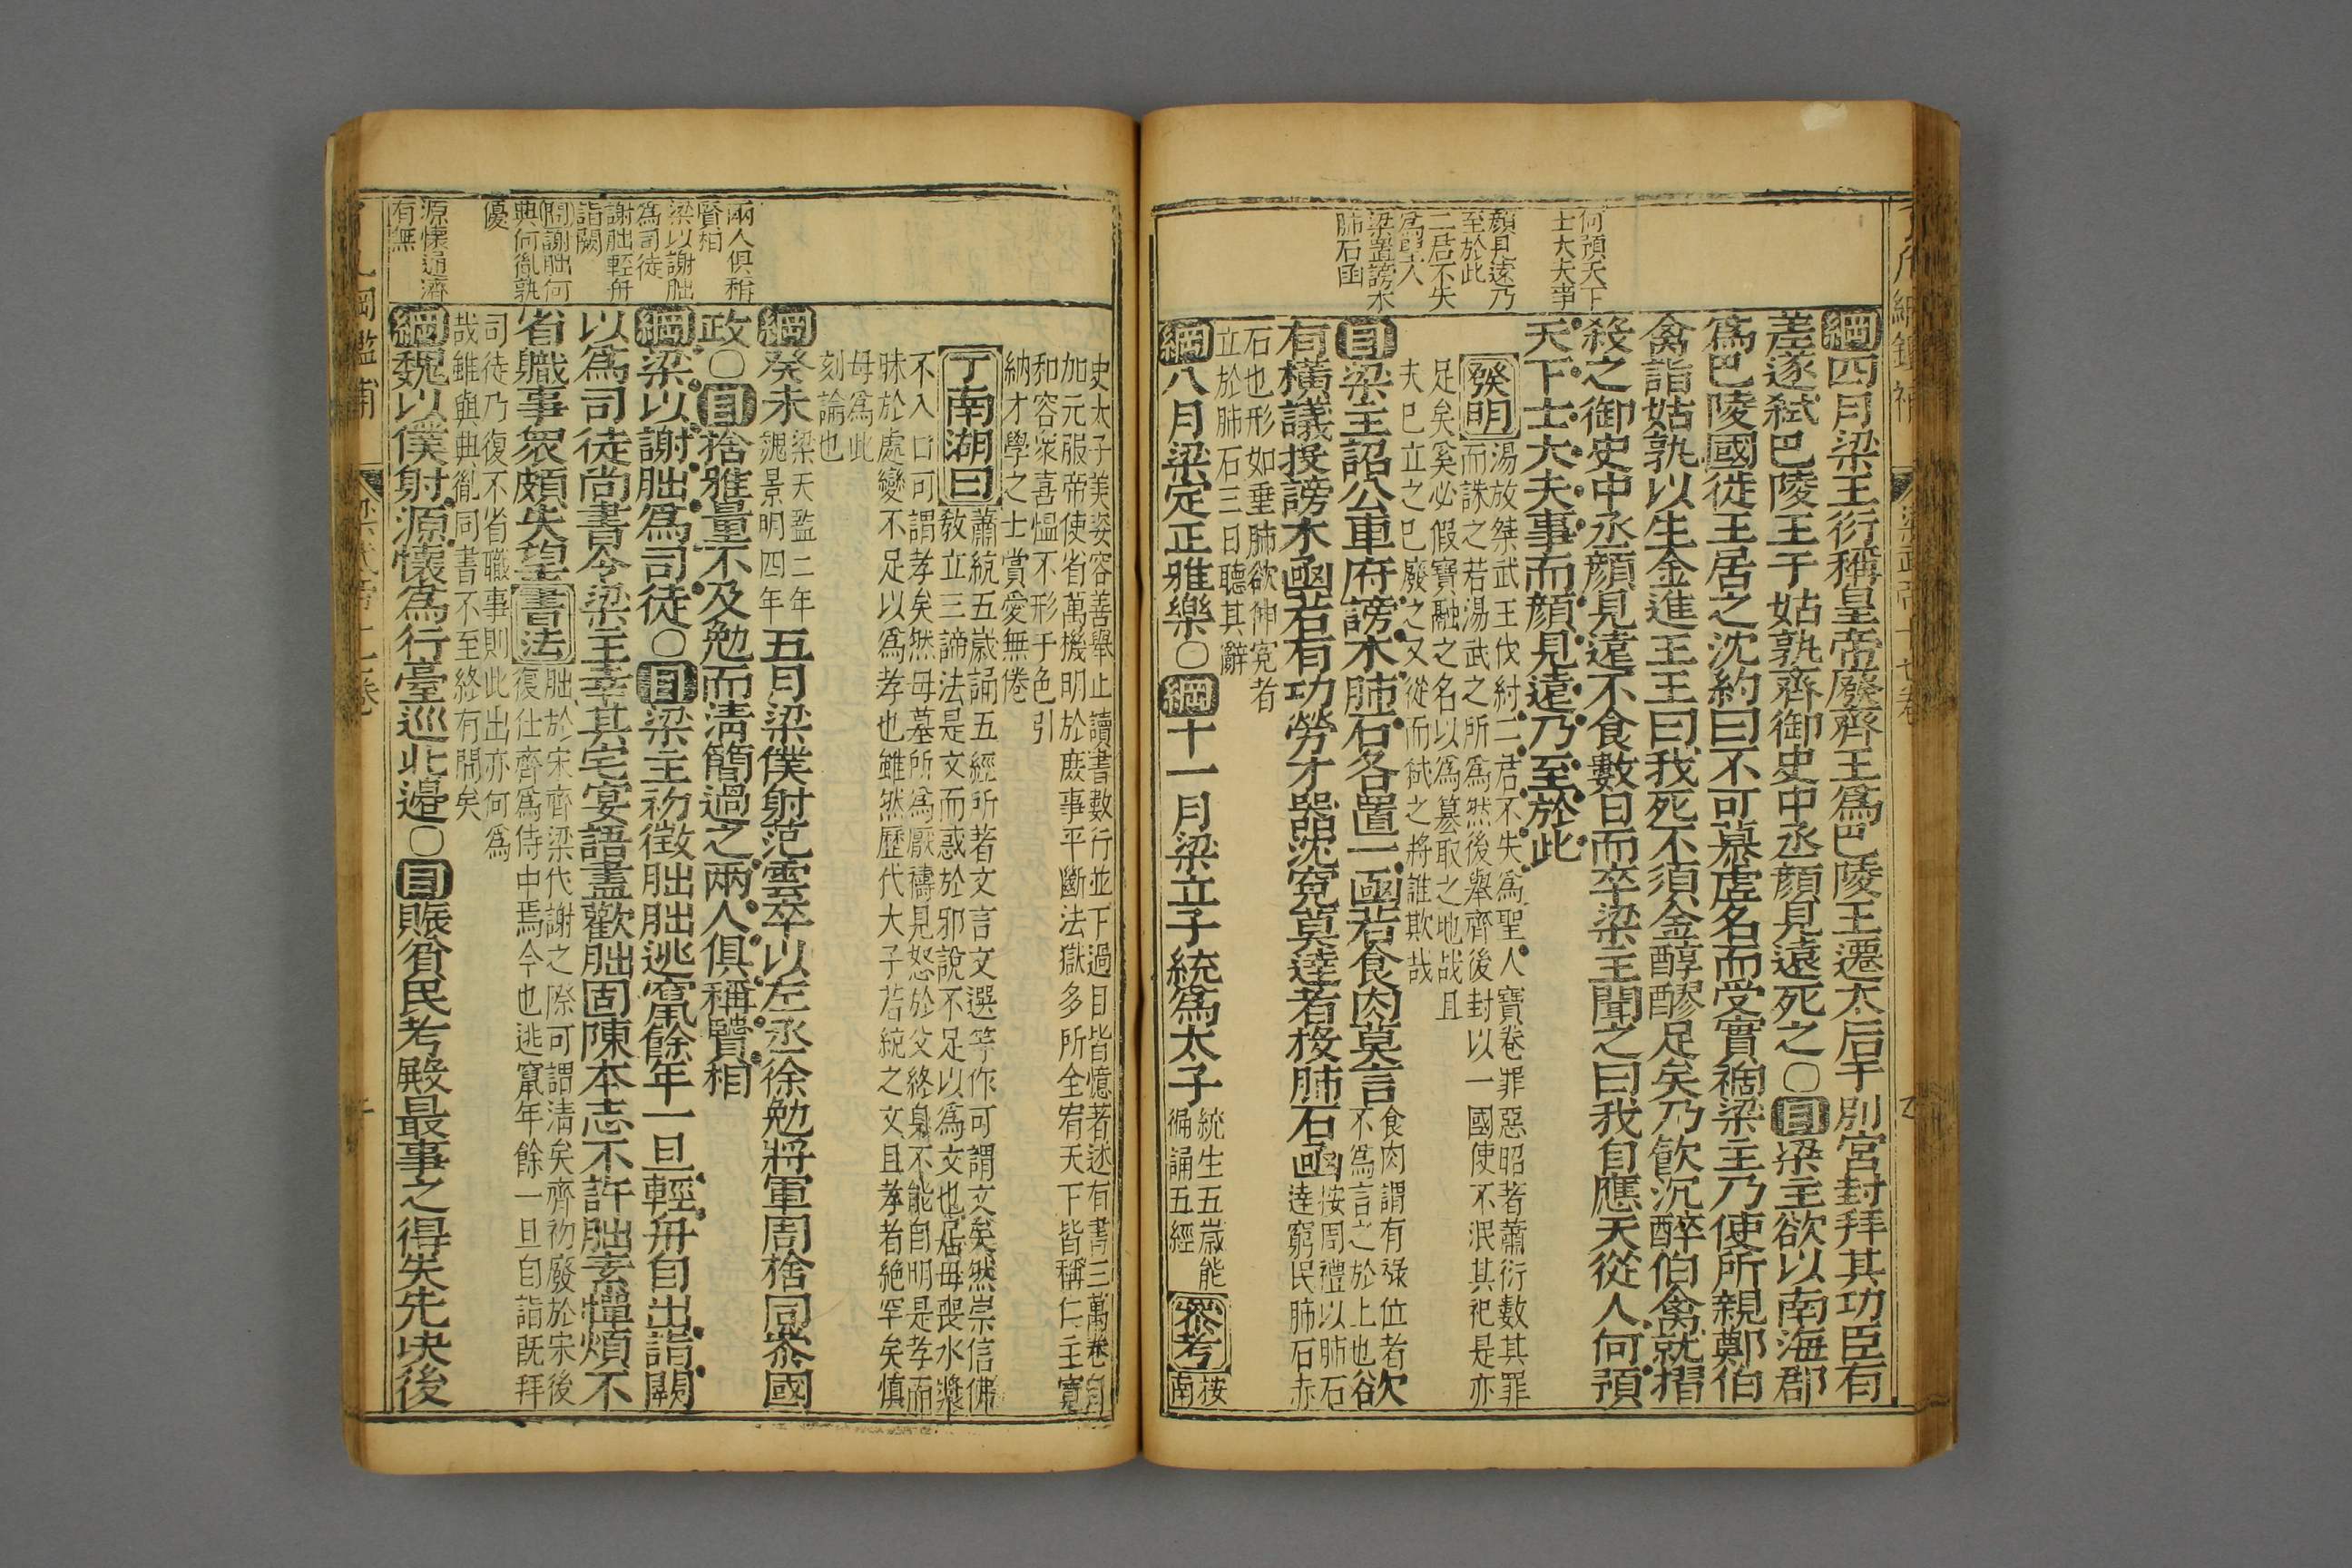 何預天下
士大夫事
顏見遠乃
至於此
二君不失
爲聖人
梁置謗木
肺石函
綱四月梁王衍稱皇帝廢齊王爲巴陵王遷太后于別宮封拜其功臣有
差遂弒巴陵王于姑孰齊御史中丞顏見遠死之○目梁主欲以南海郡
爲巴陵國徙王居之沈約曰不可慕虛名而受實禍梁主乃使所親鄭伯
禽詣姑孰以生金進王王曰我死不須金醇醪足矣乃飮沉醉伯禽就摺
殺之御史中丞顏見遠不食數日而卒梁主聞之曰我自應天從人何預
天下士大夫事而顏見遠乃至於此
發明
湯放桀武王伐紂二君不失爲聖人寶卷罪惡昭著蕭衍數其罪
而誅之若湯武之所爲然後舉齊後封以一國使不泯其祀是亦
足矣奚必假寶融之名以爲簒取之地哉且
夫巳立之巳廢之又從而弑之將誰欺哉
目梁主詔公車府謗木肺石各置一函若食肉莫言
食肉謂有祿位者
不爲言之於上也
欲
有橫議投謗木函若有功勞才器沈寃莫達者投肺石函
按周禮以肺石
達窮民肺石赤
石也形如垂肺欲伸寃者
立於肺石三日聽其辭
綱八月梁定正雅樂○綱十一月梁立子統爲太子
統生五歲能
徧誦五經
叅考
按
南
史太子美姿容善舉止讀書數行並下過目皆憶著述有書三萬卷自
加元服帝使省萬機明於庶事平斷法獄多所全宥天下皆稱仁主寬
和容衆喜慍不形于色引
納才學之士賞愛無倦
丁南湖曰
蕭統五歲誦五經所著文言文選等作可謂文矣然崇信佛
敎立三諦法是文而惑於邪說不足以爲文也居母喪水漿
不入口可謂孝矣然母墓所爲厭禱見怒於父終身不能自明是孝而
昧於處變不足以爲孝也雖然歷代太子若統之文且孝者絶罕矣愼
毋爲此
刻論也
兩人俱稱
賢相
梁以謝朏
爲司徒
謝朏輕舟
詣闕
問謝朏何
典何胤孰
優
源懷通濟
有無
綱癸未
梁天監二年
魏景明四年
五月梁僕射范雲卒以左丞徐勉將軍周捨同叅國
政○目捨雅量不及勉而淸簡過之兩人俱稱賢相
綱梁以謝朏爲司徒○目梁主初徵朏朏逃竄餘年一旦輕舟自出詣闕
以爲司徒尚書令梁主幸其宅宴語盡歡朏固陳本志不許朏素憚煩不
省職事衆頗失望
書法
朏於宋齊梁代謝之際可謂淸矣齊初廢於宋後
復仕齊爲侍中焉今也逃竄年餘一旦自詣旣拜
司徒乃復不省職事則此出亦何爲
哉雖與典胤同書不至終有間矣
綱魏以僕射源懷爲行臺巡北邊○目賑貧民考殿最事之得失先決後